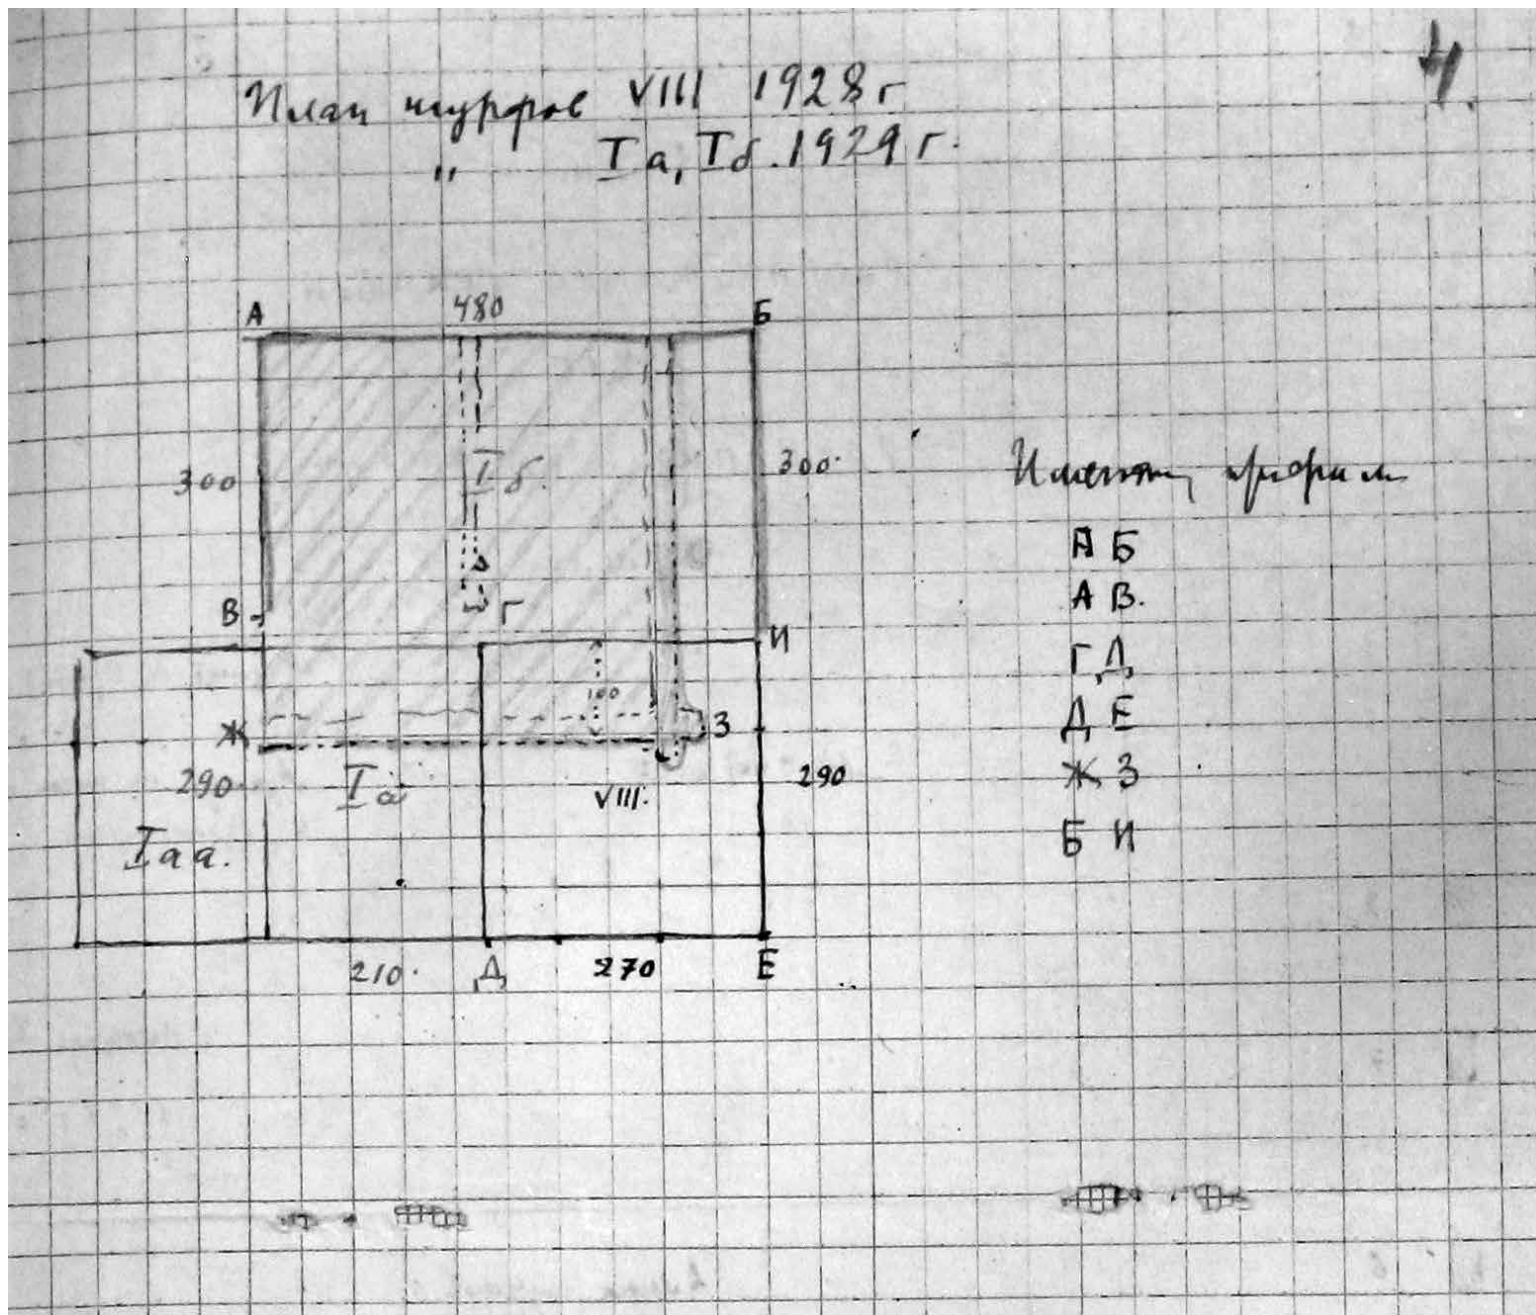 4.
План шурфов VIII 1928 г
" Iа, Iб. 1929 г.
А 480 Б
300 Iб. 300
В Г И
100
Ж З
290 Iа VIII. 290
Iаа.
210 Д 270 Е
профили
А Б
А В.
Г Д
Д Е
Ж З
Б И